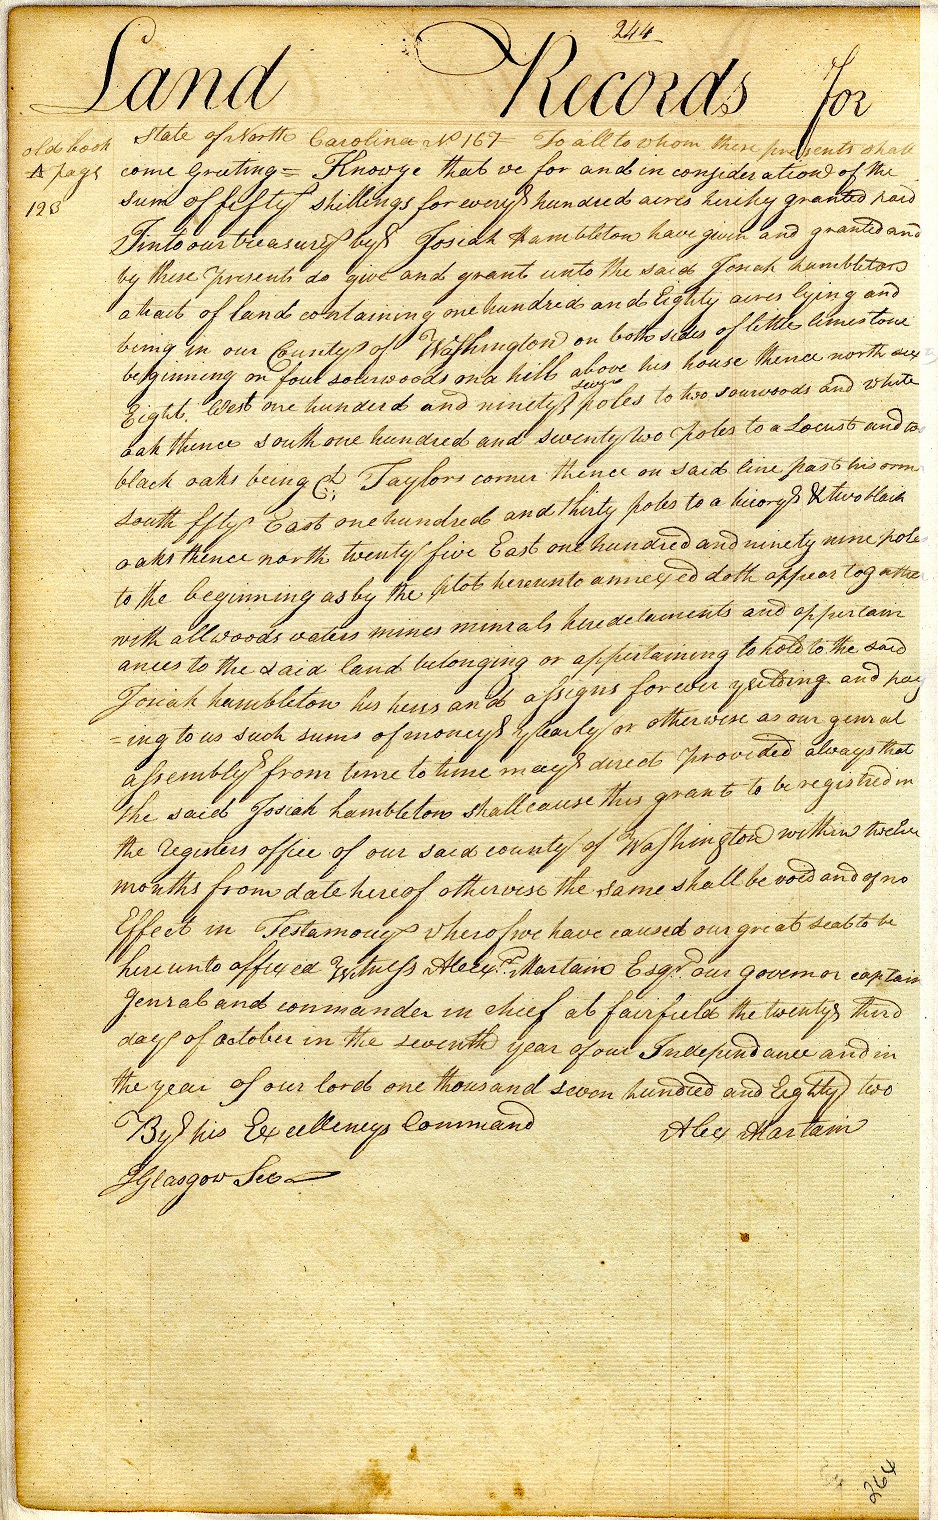 244
Land Records for
old book
A page
123
State of North Carolina No 167 To all to whom these presents shall
come Greeting = Know ye that we for and in consideration of the
sum of fifty shillings for every hundred acres hereby granted paid
Into our treasury by Josiah Hambleton have given and granted and
by these presents do give and grant unto the said Josiah hambleton
a tract of land containing one hundred and Eighty acres lying and
being in our County of Washington on both sides of little limestone
beginning on four sourwoods on a hill above his house thence north six
seven
Eight West one hunderd and ninety poles to two sourwoods and white
oak thence south one hundred and seventy two poles to a Locust and
black oaks being Taylors corner thence on said line past his
south ffty East one hundred and thirty poles to a hicory & two black
oaks thence north twenty five East one hundred and ninety nine poles
to the beginning as by the plot hereunto annexed doth appear together
with all woods waters mines minrals heredetaments and appertain
ances to the said land belonging or appertaining to hold to the said
Josiah hambleton his heirs and assigns for ever yeilding and pay
=ing to us such sums of money yearly or otherwise as our genral
assembly from time to time may direct provided always that
the said Josiah hambleton shall cause this grant to be registred in
the registers office of our said county of Washington within twelve
months from date hereof otherwise the same shall be void and of no
Effect in Testamony wherof we have caused our great seal to be
hereunto affixed Witness Alexr. Martain Esqr. our governor captain
Genral and commander in chief at fairfield the twenty third
day of october in the seventh year of our Independance and in
the year of our lord one thousand seven hundred and Eighty two
By his Excellencys Command Alex Martain
J Glasgow Sec
264